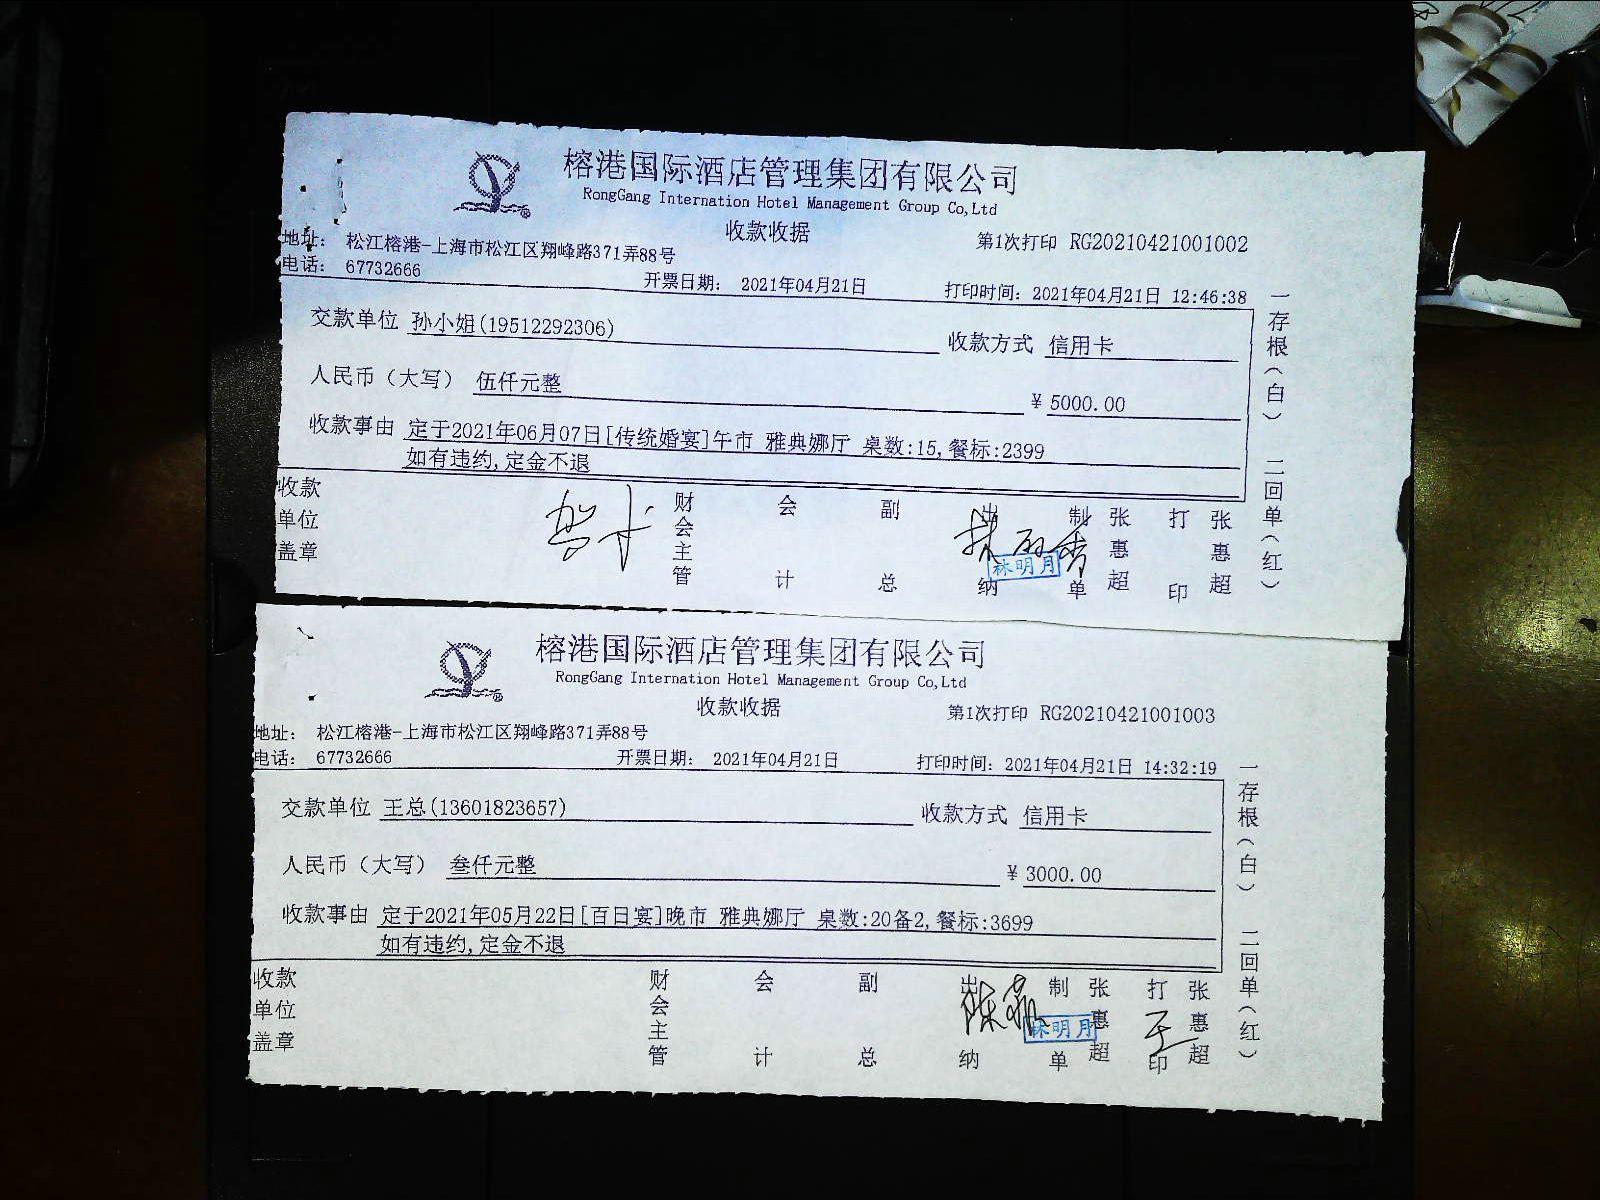 榕港国际酒店管理集团有限公司
RongGang Internation Hotel Management Group Co,Ltd
收款收据
第1次打印 RG20210421001002
地址: 松江榕港-上海市松江区翔峰路371弄88号
电话: 67732666
开票日期: 2021年04月21日
打印时间: 2021年04月21日 12:46:38
交款单位 孙小姐(19512292306)
收款方式 信用卡
人民币(大写) 伍仟元整
¥ 5000.00
收款事由 定于2021年06月07日[传统婚宴]午市 雅典娜厅 桌数:15,餐标:2399
如有违约,定金不退
收款单位盖章
财会主管
会计
副总
出纳
林明月
制单
张惠超
打印
张惠超
一存根(白)
二回单(红)
榕港国际酒店管理集团有限公司
RongGang Internation Hotel Management Group Co,Ltd
收款收据
第1次打印 RG20210421001003
地址: 松江榕港-上海市松江区翔峰路371弄88号
电话: 67732666
开票日期: 2021年04月21日
打印时间: 2021年04月21日 14:32:19
交款单位 王总(13601823657)
收款方式 信用卡
人民币(大写) 叁仟元整
¥ 3000.00
收款事由 定于2021年05月22日[百日宴]晚市 雅典娜厅 桌数:20备2,餐标:3699
如有违约,定金不退
收款单位盖章
财会主管
会计
副总
出纳
林明月
制单
张惠超
打印
张惠超
一存根(白)
二回单(红)